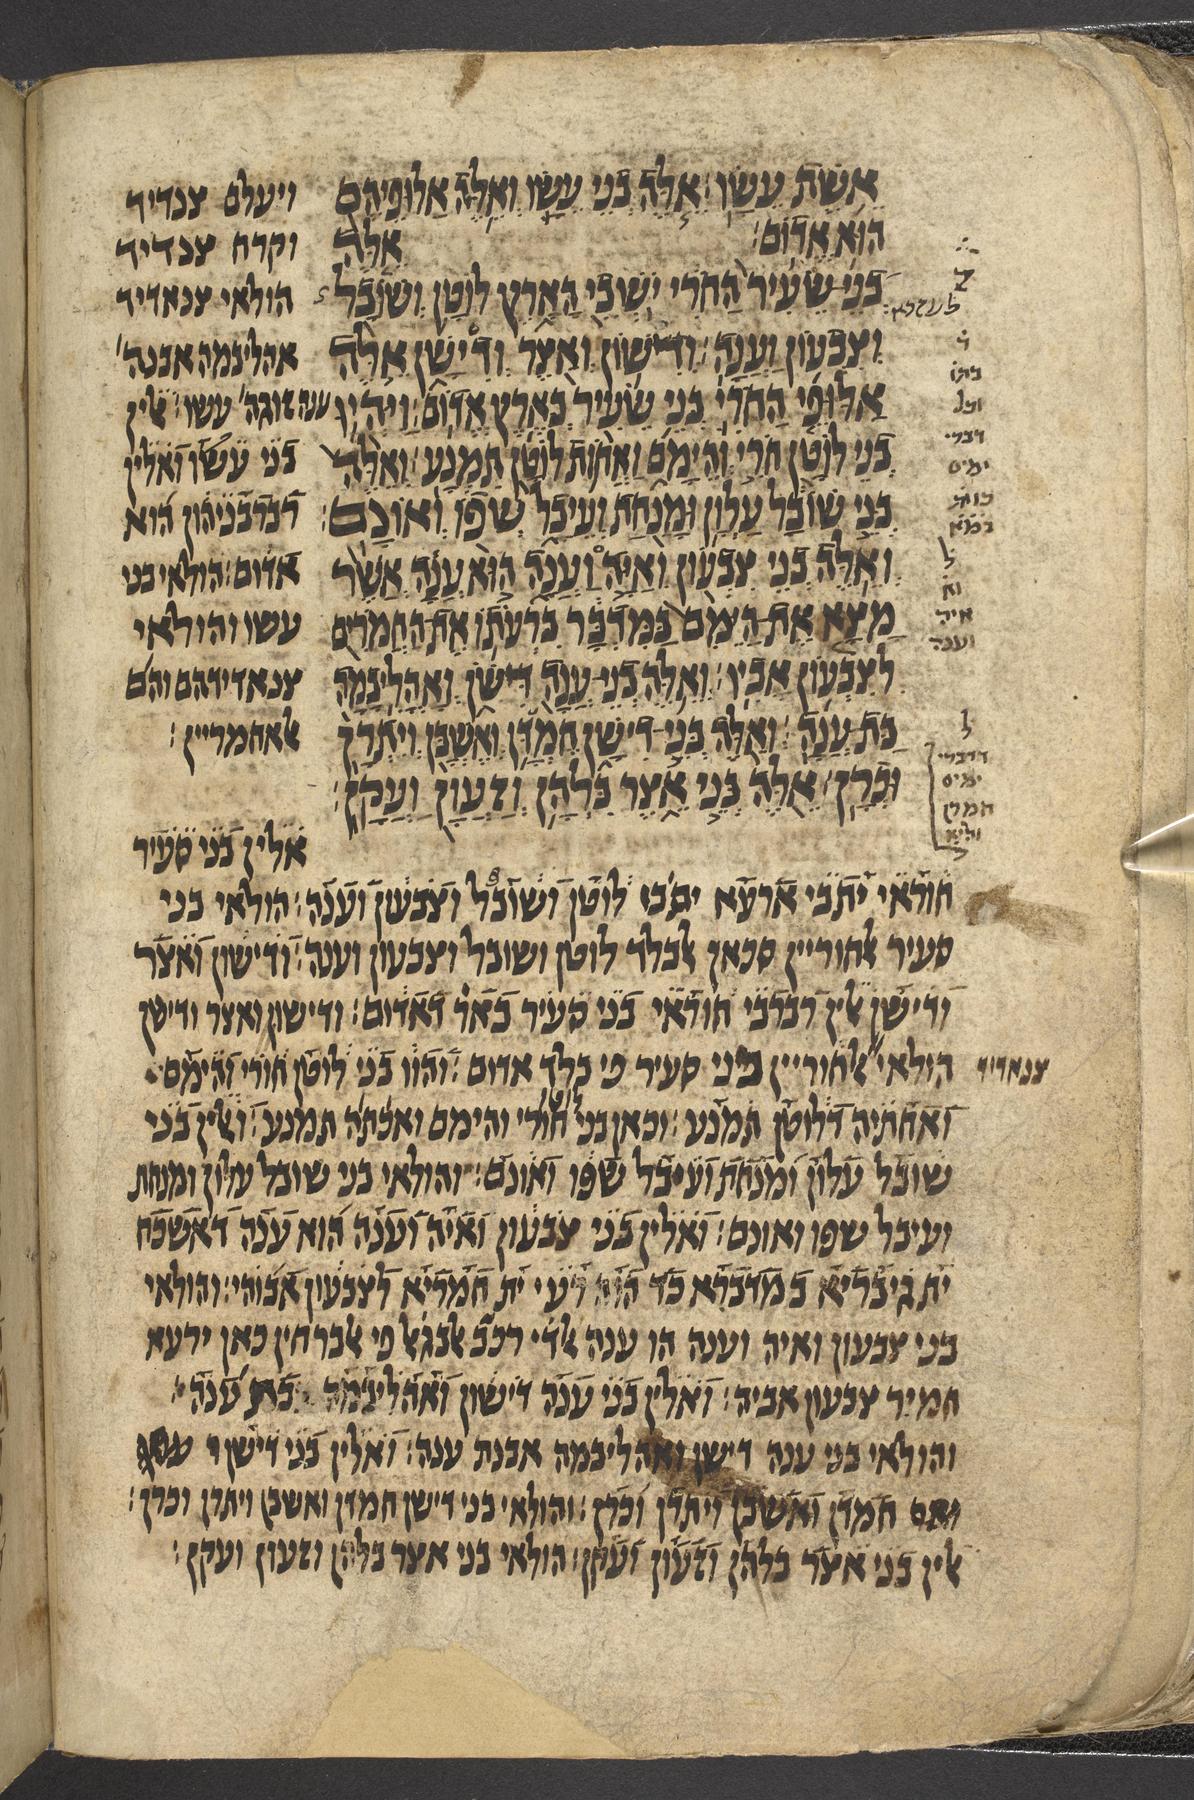 אֵשֶׁת עֵשָׂו׃ אֵלֶּה בְנֵי עֵשָׂו וְאֵלֶּה אַלּוּפֵיהֶם
הוּא אֱדוֹם׃ אֵלֶּה
בְנֵי שֵׂעִיר הַחֹרִי יֹשְׁבֵי הָאָרֶץ לוֹטָן וְשׁוֹבָל
וְצִבְעוֹן וַעֲנָה׃ וְדִישׁוֹן וְאֵצֶר וְדִישָׁן אֵלֶּה
אַלּוּפֵי הַחֹרִי בְּנֵי שֵׂעִיר בְּאֶרֶץ אֱדוֹם׃ וַיִּהְיוּ
בְנֵי לוֹטָן חֹרִי וְהֵימָם וַאֲחוֹת לוֹטָן תִּמְנָע׃ וְאֵלֶּה
בְּנֵי שׁוֹבָל עַלְוָן וּמָנַחַת וְעֵיבָל שְׁפוֹ וְאוֹנָם׃
וְאֵלֶּה בְנֵי צִבְעוֹן וְאַיָּה וַעֲנָה הוּא עֲנָה אֲשֶׁר
מָצָא אֶת הַיֵּמִם בַּמִּדְבָּר בִּרְעֹתוֹ אֶת הַחֲמֹרִים
לְצִבְעוֹן אָבִיו׃ וְאֵלֶּה בְנֵי עֲנָה דִּישֹׁן וְאָהֳלִיבָמָה
בַּת עֲנָה׃ וְאֵלֶּה בְּנֵי דִישָׁן חֶמְדָּן וְאֶשְׁבָּן וְיִתְרָן
וּכְרָן׃ אֵלֶּה בְּנֵי אֵצֶר בִּלְהָן וְזַעֲוָן וַעֲקָן׃
ויעלם צנדיד
וקרח צנדיד
הולאי צנאדיד
אהליבמה אבנה
ענה זוגה עשו׃ אלין
בני עשו ואלין
רברבניהון הוא
אדום׃ הולאי בני
עשו והולאי
צנאדידהם והם
אלאחמריין׃
אלין בני סעיר
חוראי יתבי ארעא לוטן ושובל וצבעון וענה׃ הולאי בני
סעיר אלחוריין סכאן אלבלד לוטן ושובל וצבעון וענה׃ ודישון ואצר
ודישן אלין רברבי חוראי בני סעיר באר דאדום׃ ודישון ואצר ודישן
הולאי אלחוריין בני סעיר פי בלד אדום׃ והוו בני לוטן חורי והימם
צנאדיד
ואחתיה דלוטן תמנע׃ וכאן בני חורי והימם ואכתה תמנע׃ ואלין בני
שובל עלון ומנחת ועיבל שפו ואונם׃ והולאי בני שובל עלון ומנחת
ועיבל שפו ואונם׃ ואלין בני צבעון ואיה וענה הוא ענה דאשכח
ית גיבריא במדברא כד הוה רעי ית חמריא לצבעון אבוהי׃ והולאי
בני צבעון ואיה וענה הו ענה אלדי רכב אלבגאל פי אלברחין כאן ירעא
חמיר צבעון אביה׃ ואלין בני ענה דישון ואהליבמה בת ענה׃
והולאי בני ענה דישן ואהליבמה אבנת ענה׃ ואלין בני דישן
חמדן ואשבן ויתרן וכרן׃ והולאי בני דישן חמדן ואשבן ויתרן וכרן׃
אלין בני אצר בלהן וזעון ועקן׃ הולאי בני אצר בלהן וזעון ועקן׃
וכל
דברי
ימים
איה
וענה
דדברי
ימים
חמרן